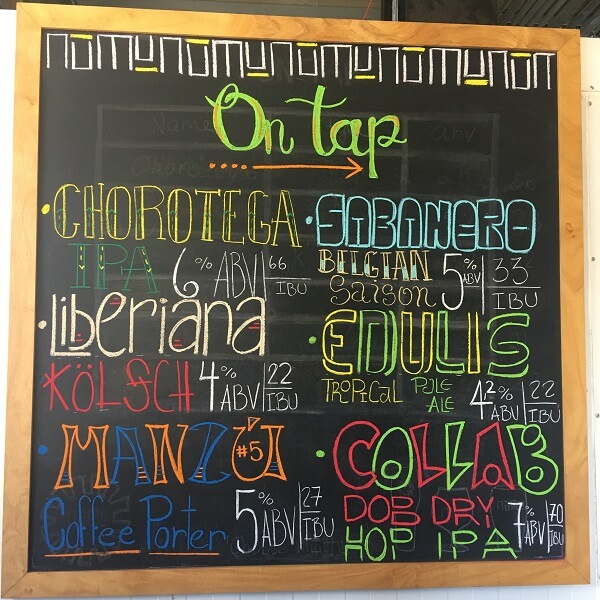 On tap
CHOROTEGA
IPA 6% ABV 66 IBU
Liberiana
KÖLSCH 4% ABV 22 IBU
MANZÚ #5
Coffee Porter 5% ABV 27 IBU
SABANERO
BELGIAN Saison 5% ABV 33 IBU
EDULIS
TROPICAL PALE ALE 4.2% ABV 22 IBU
COLLAB
DOB DRY
HOP IPA 7% ABV 70 IBU